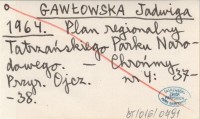 GAWŁOWSKA Jadwiga
1964. Plan regionalny
Tatrzańskiego Parku Naro-
dowego. – Chrońmy
Przyr. Ojcz. nr 4: 937-
-38.
bt/016/0491